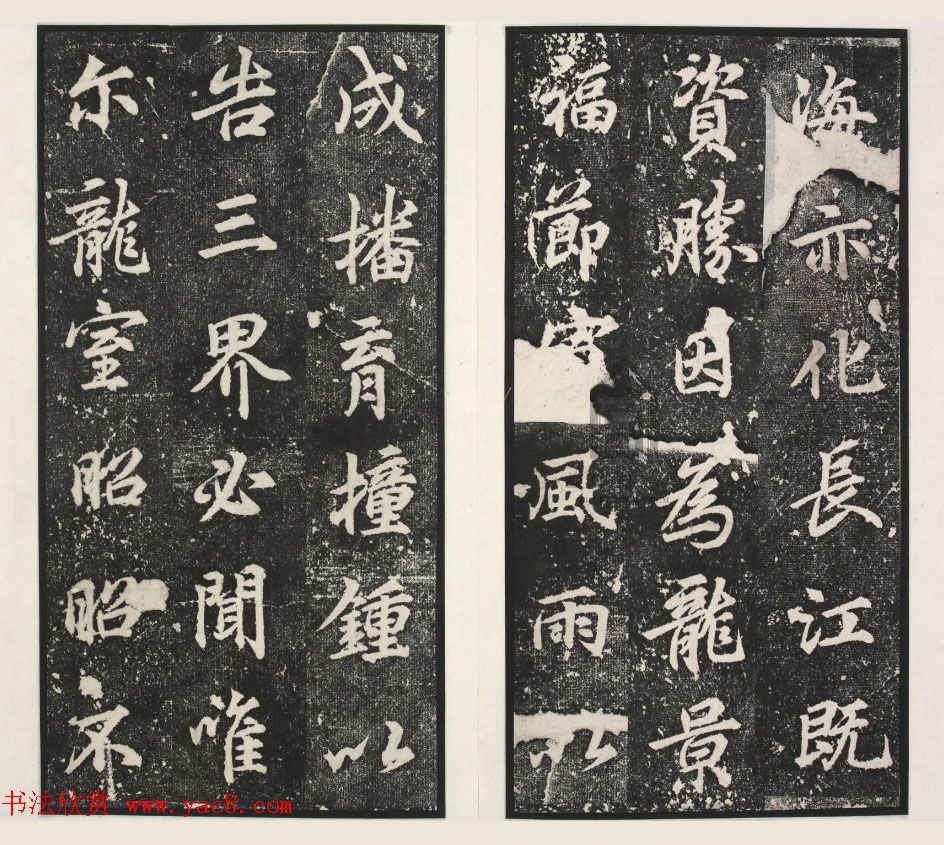 海亦化長江既
資勝因為龍景
福節宣風雨以
成播育撞鍾以
告三界必聞唯
尓龍室昭昭不
书法欣赏 www.yac8.com